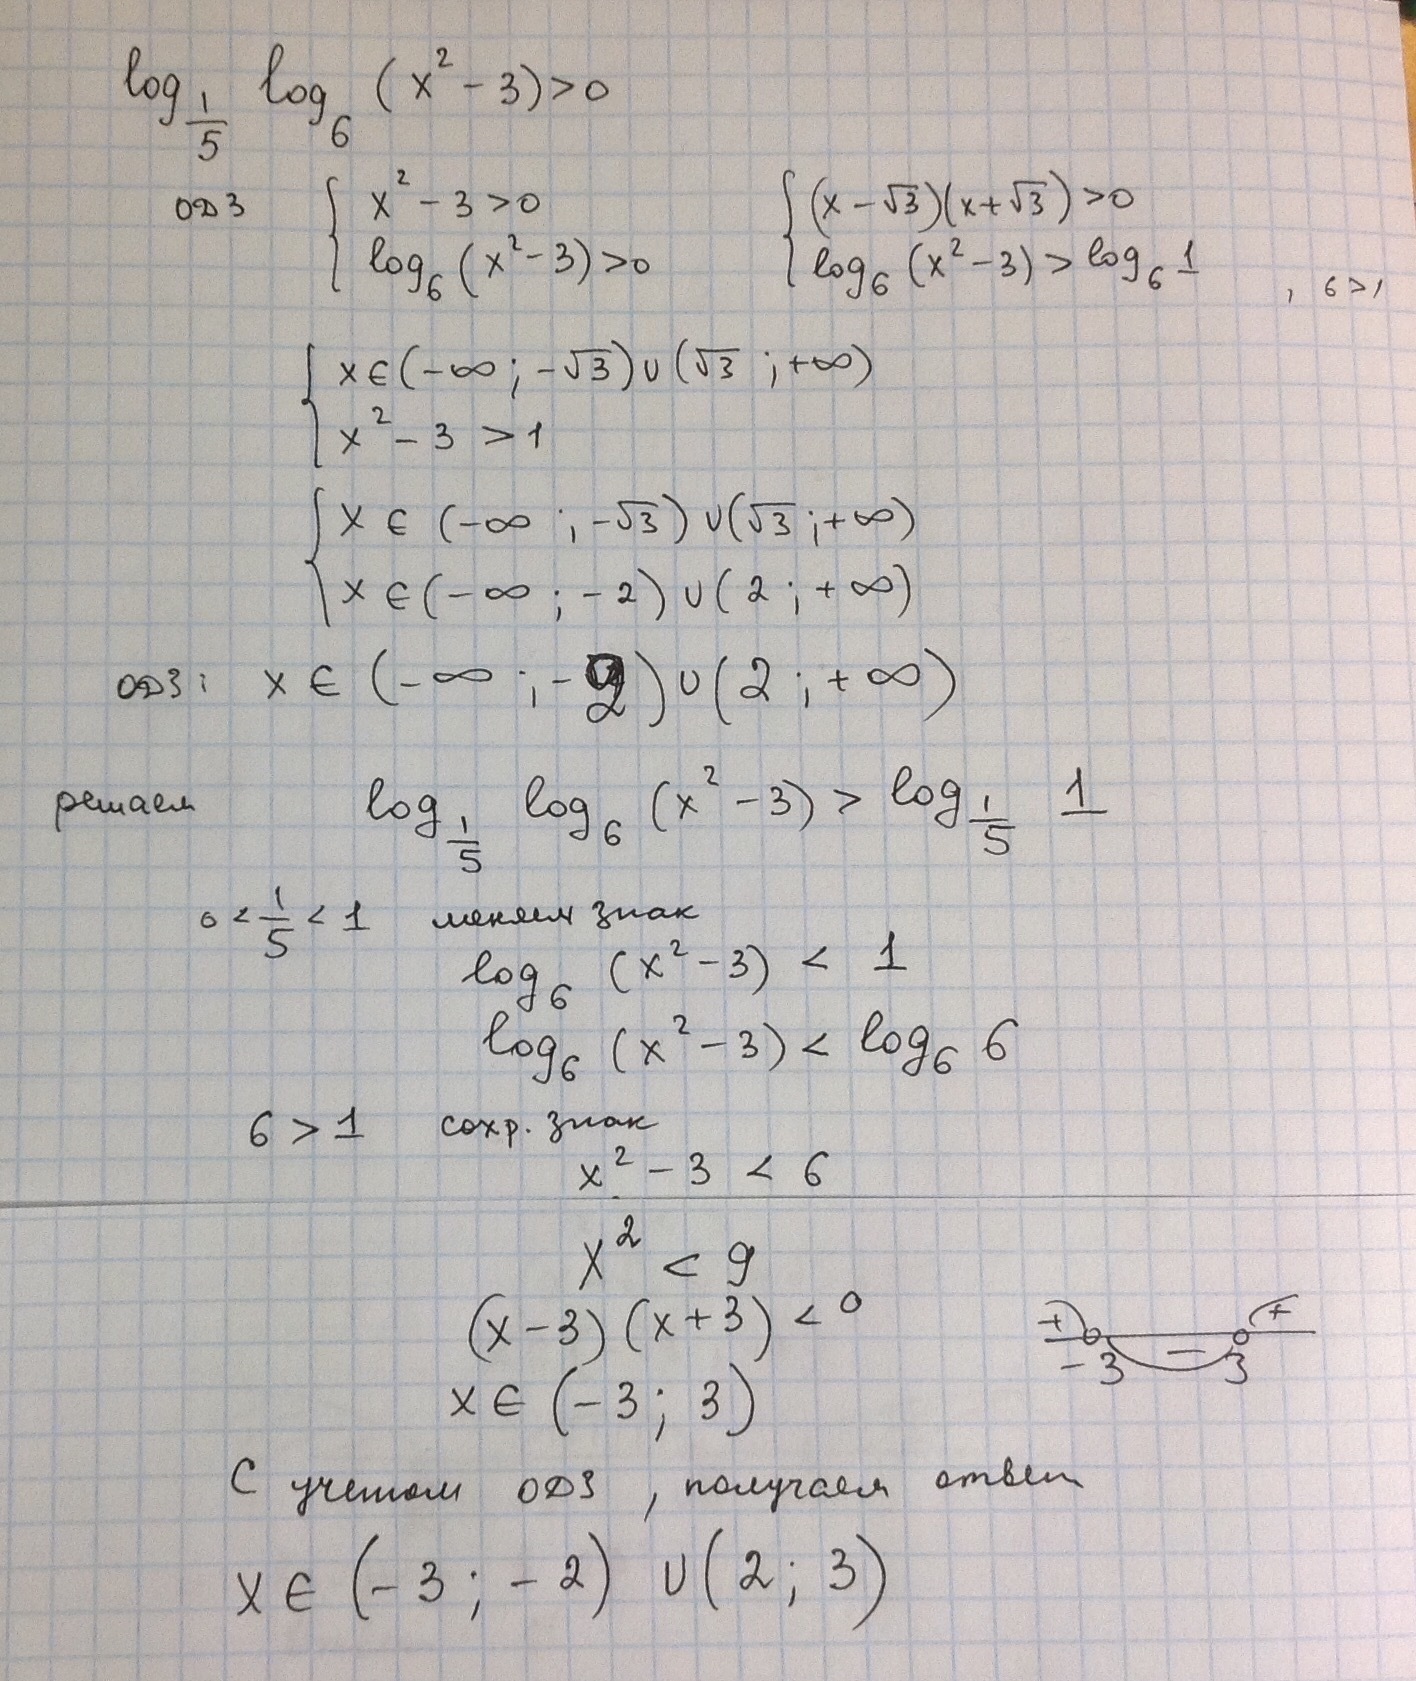 log_{1/5} log_6 (x² - 3) > 0
ОДЗ { x² - 3 > 0 { (x - √3)(x + √3) > 0
log_6 (x² - 3) > 0 log_6 (x² - 3) > log_6 1 , 6 > 1
{ x ∈ (-∞; -√3) ∪ (√3; +∞)
x² - 3 > 1
{ x ∈ (-∞; -√3) ∪ (√3; +∞)
x ∈ (-∞; -2) ∪ (2; +∞)
ОДЗ: x ∈ (-∞; -2) ∪ (2; +∞)
решаем log_{1/5} log_6 (x² - 3) > log_{1/5} 1
0 < 1/5 < 1 меняем знак
log_6 (x² - 3) < 1
log_6 (x² - 3) < log_6 6
6 > 1 сохр. знак
x² - 3 < 6
x² < 9
(x - 3)(x + 3) < 0
+ - +
-3 3
x ∈ (-3; 3)
С учетом ОДЗ, получаем ответ
x ∈ (-3; -2) ∪ (2; 3)